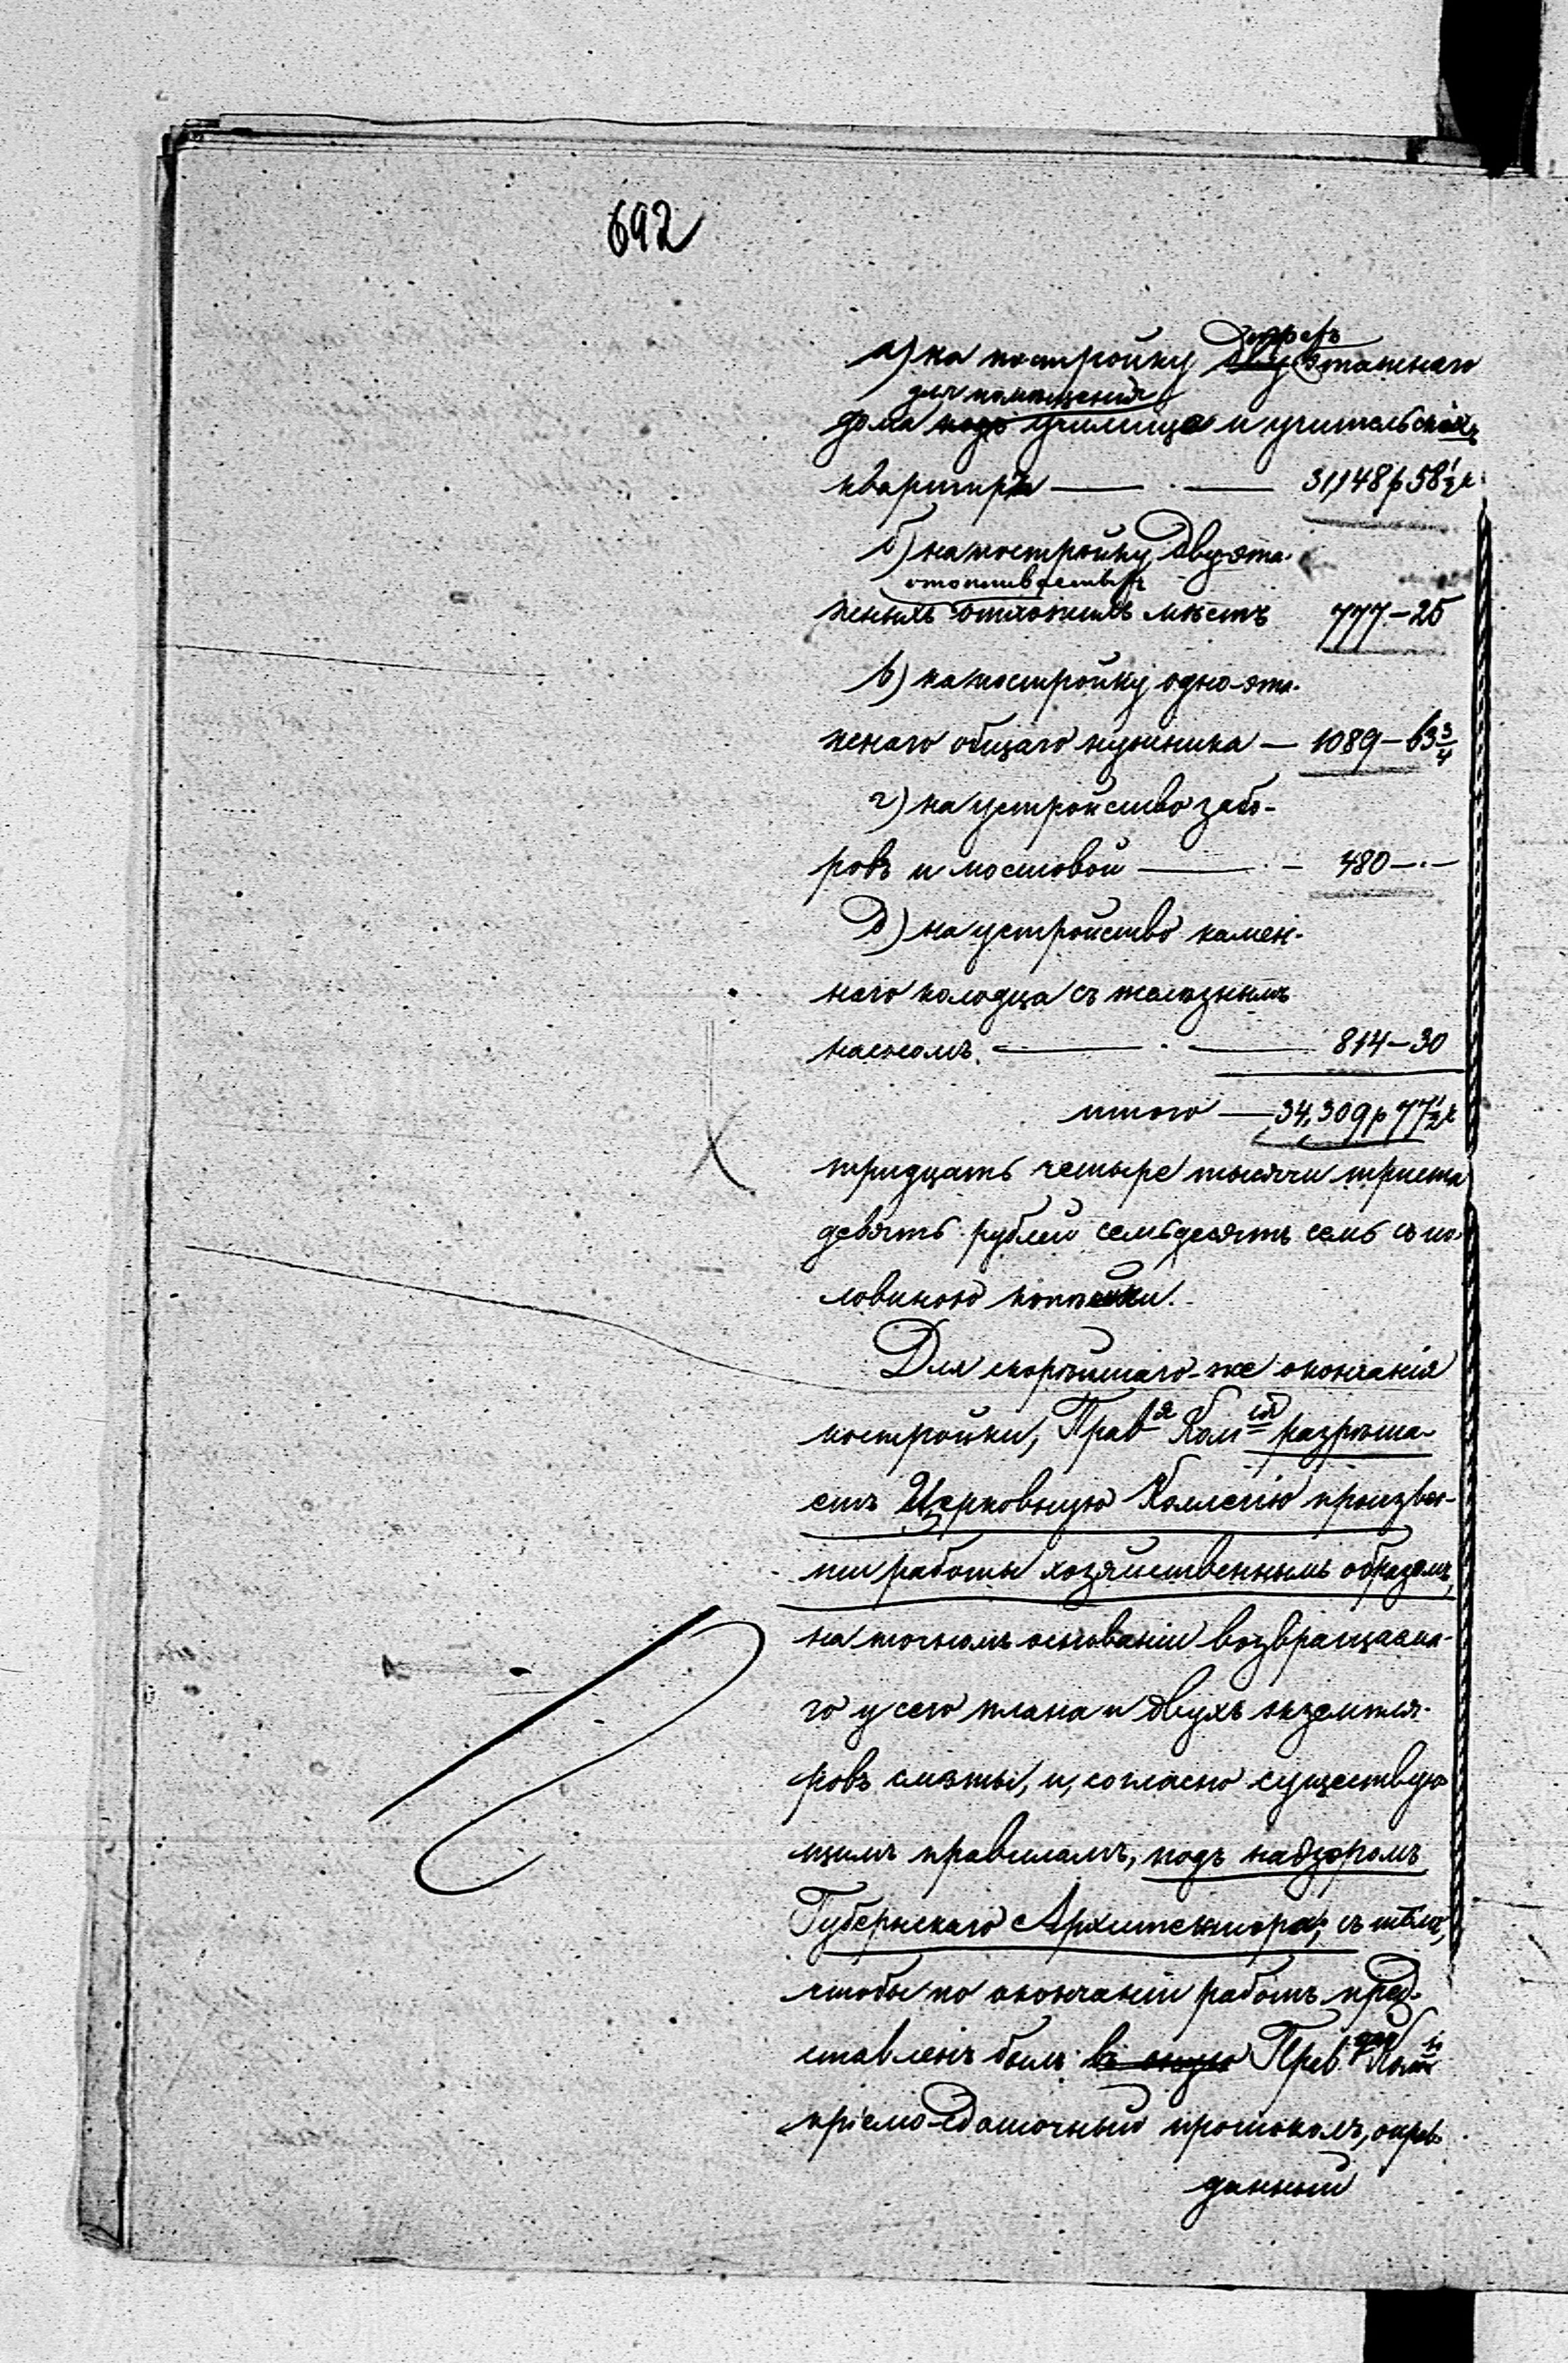 692
а) на постройку трехъ двуэтажнаго
для помѣщенія
дома подъ училище и учительскихъ
квартиръ — · — 31,148 р 58½ к
б) на постройку двуэта-
отапливаемыхъ
жныхъ отхожихъ мѣстъ 777–25
в) на постройку одно-эта-
жнаго общаго нужника — 1089–63¾
г) на устройство забо-
ровъ и мостовой — · – 480–·–
д) на устройство камен-
наго колодца съ желѣзнымъ
насосомъ. — · — 814–30
итого — 34,309 р 77½ к
тридцать четыре тысячи триста
девять рублей семьдесятъ семь съ по-
ловиною копѣйки.
Для скорѣйшаго-же окончанія
постройки, Прав–я Ком–ія разрѣша-
етъ Церковную Коллегію произвес-
ти работы хозяйственнымъ образомъ,
на точномъ основаніи возвращаема-
го у сего плана и двухъ экземпля-
ровъ смѣты, и, согласно существую-
щимъ правиламъ, подъ надзоромъ
Губернскаго Архитектора, съ тѣмъ,
чтобы по окончаніи работъ пред-
ставленъ былъ въ оную Прав Ком
пріемо-сдаточный протоколъ, оправ-
данный